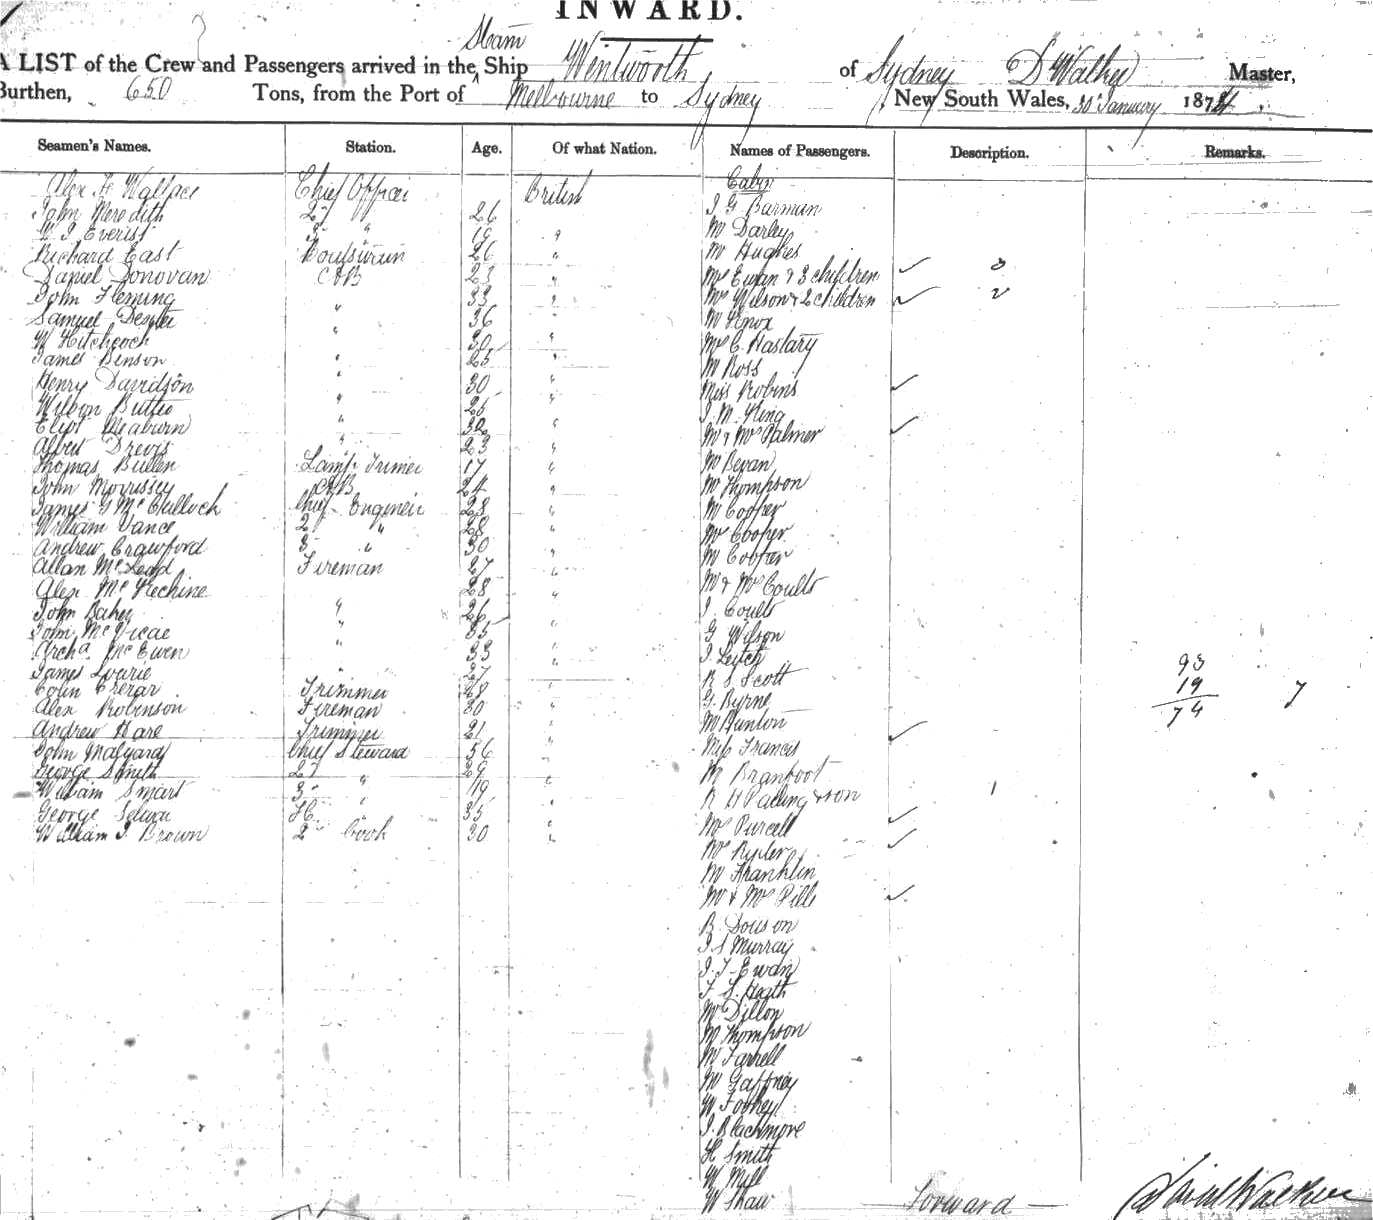 INWARD.
Steam
A LIST of the Crew and Passengers arrived in the Ship Wentworth of Sydney D Walker Master,
Burthen, 650 Tons, from the Port of Melbourne to Sydney New South Wales, 30 January 187
Seamen's Names. Station. Age. Of what Nation. Names of Passengers. Description. Remarks.
Alex Wallace Chief Officer British Cabin
John Meredith 2 " 26 J G Barmun
Everist 3 " 19 " Mr Darley
Richard East 26 " Mr Hughes
Daniel Donovan AB 23 " Mrs Ewan & 3 children ✓ 3
John Fleming 33 " Mrs Wilson & 2 children ✓ 2
Samuel " 36 " Mr Knox
W Hitchcock " 30 " Mr C. Hastary
James Benson " 25 " Mr Ross
Henry Davidson " 30 " Miss Robins ✓
Wilson " 25 " J. M. King
" 32 " Mr & Mrs Palmer ✓
Albert " 23 " Mr Bevan
Thomas Bullen Lamp Trimer 17 " Mr Thompson
John Morrissey AB 24 " Mr Cooper
James G McCulloch Chief Engineer 28 " Mr Cooper
William Vance 2 " 28 " Mr Cooper
Andrew Crawford 3 " 30 " Mr & Mrs Coults
Allan McLeod Fireman 27 " J. Coults
Alex McKechine 28 " G Wilson
John Baker " 26 " J. Leitch
John McVicar " 35 " R S Scott
Archd McEwen " 33 " G. Byrne
James Lourie " 27 " Mr Hunton
Colin Crerar Trimmer 28 " Miss Francis ✓
Alex Robinson Fireman 30 " Mr Branfoot
Andrew Hare Trimmer 21 " R H Paling & son 1
John Malyard Chief Steward 56 " Mrs Purcell ✓
George Smith 2 " 29 " Mrs ✓
William Smart 3 " 19 " Mr Franklin
George 35 " Mr & Mrs Pills ✓
William J. Brown 2 Cook 30 " R.
J S Murray
J. T. Ewan
F S. Heath
Mr Dillon
Mr Thompson
Mr Farrell
Mr Gaffney
W. Foohey
J. Blachmore
H Smith
W Mill
W Shaw
93
19
74 7
Forward
David Walker